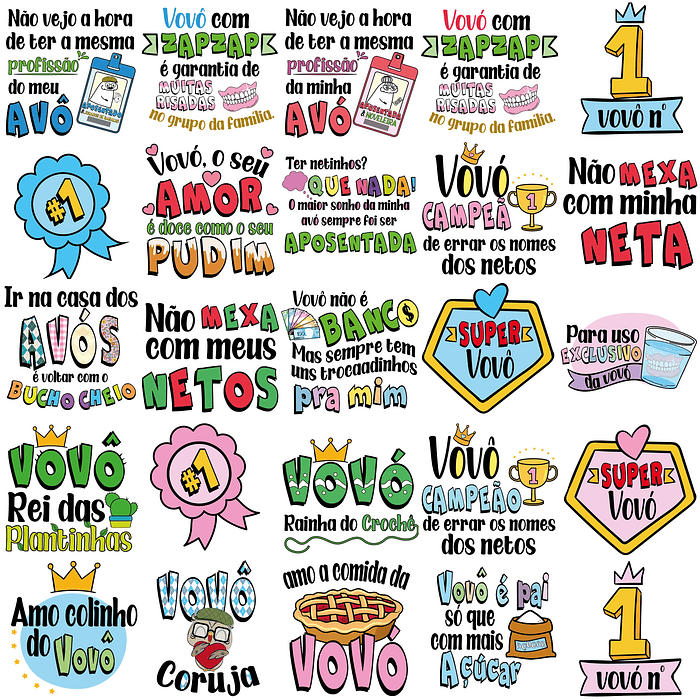 Não vejo a hora
de ter a mesma
profissão
do meu
AVÔ
APOSENTADO
Vovô com
ZAPZAP
é garantia de
MUITAS
RISADAS
no grupo da família.
Não vejo a hora
de ter a mesma
profissão
da minha
AVÓ
APOSENTADA
& NOVELEIRA
Vovó com
ZAPZAP
é garantia de
MUITAS
RISADAS
no grupo da família.
1
vovô nº
#1
Vovó, o seu
AMOR
é doce como o seu
PUDIM
Ter netinhos?
QUE NADA!
O maior sonho da minha
avó sempre foi ser
APOSENTADA
Vovó
CAMPEÃ
1
de errar os nomes
dos netos
Não MEXA
com minha
NETA
Ir na casa dos
AVÓS
é voltar com o
BUCHO CHEIO
Não MEXA
com meus
NETOS
Vovô não é
BANCO
Mas sempre tem
uns trocaadinhos
pra mim
SUPER
Vovô
Para uso
EXCLUSIVO
da vovó
VOVÔ
Rei das
Plantinhas
#1
VOVÓ
Rainha do Crochê
Vovô
CAMPEÃO
1
de errar os nomes
dos netos
SUPER
Vovó
Amo colinho
do Vovô
VOVÔ
Coruja
amo a comida da
VOVÓ
Vovô é pai
só que
com mais
Açúcar
1
vovó nº